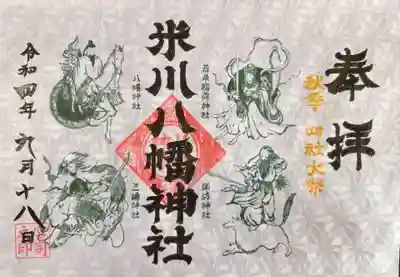 奉拝
秋季 四社大祭
若泉稲荷神社
諏訪神社
米川八幡神社
八幡神社
三嶋神社
令和四年九月十八日